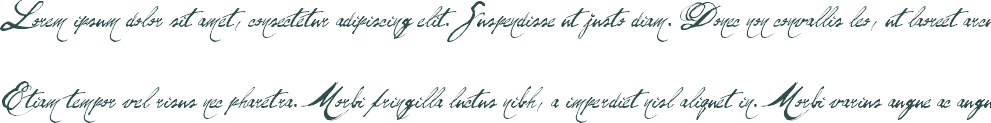 Lorem ipsum dolor sit amet, consectetur adipiscing elit. Suspendisse ut justo diam. Donec non convallis leo, ut laoreet arcu
Etiam tempor vel risus nec pharetra. Morbi fringilla luctus nibh, a imperdiet nisl aliquet in. Morbi varius augue ac augu